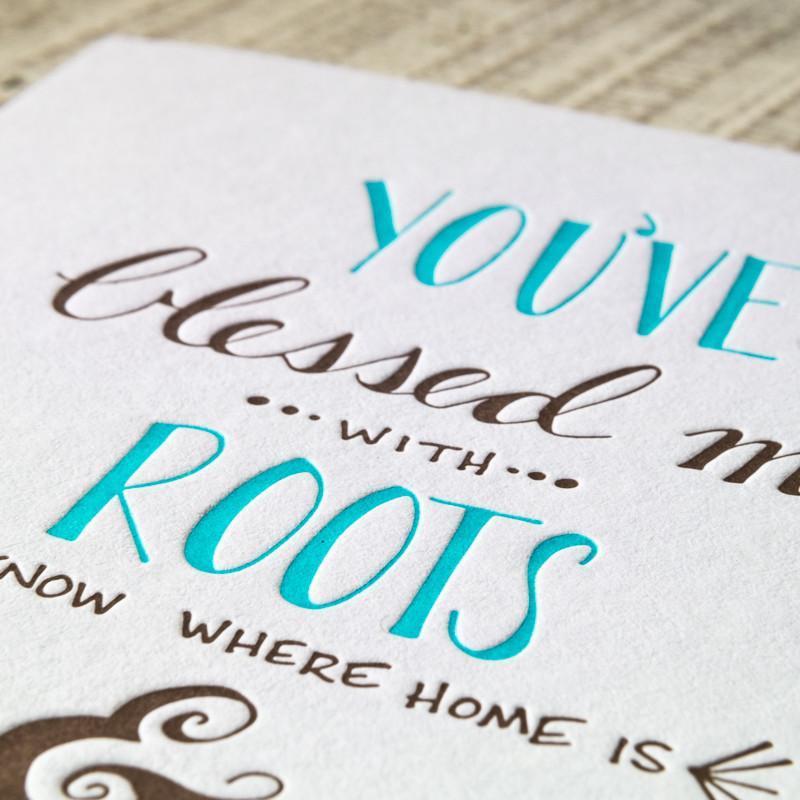 YOU'VE
blessed
...WITH...
ROOTS
KNOW WHERE HOME IS
&